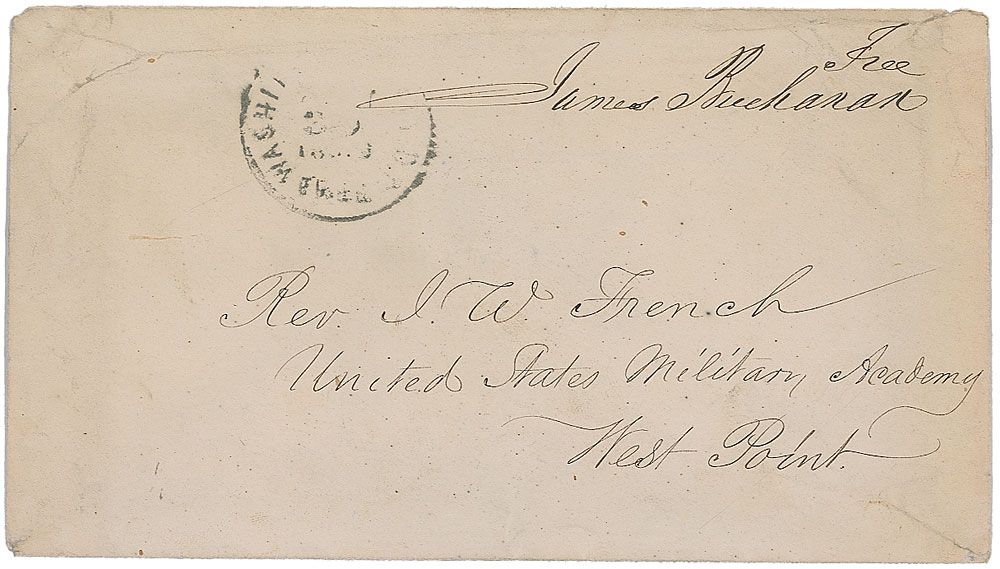 Free
James Buchanan
Rev. J. W. French
United States Military Academy
West Point.